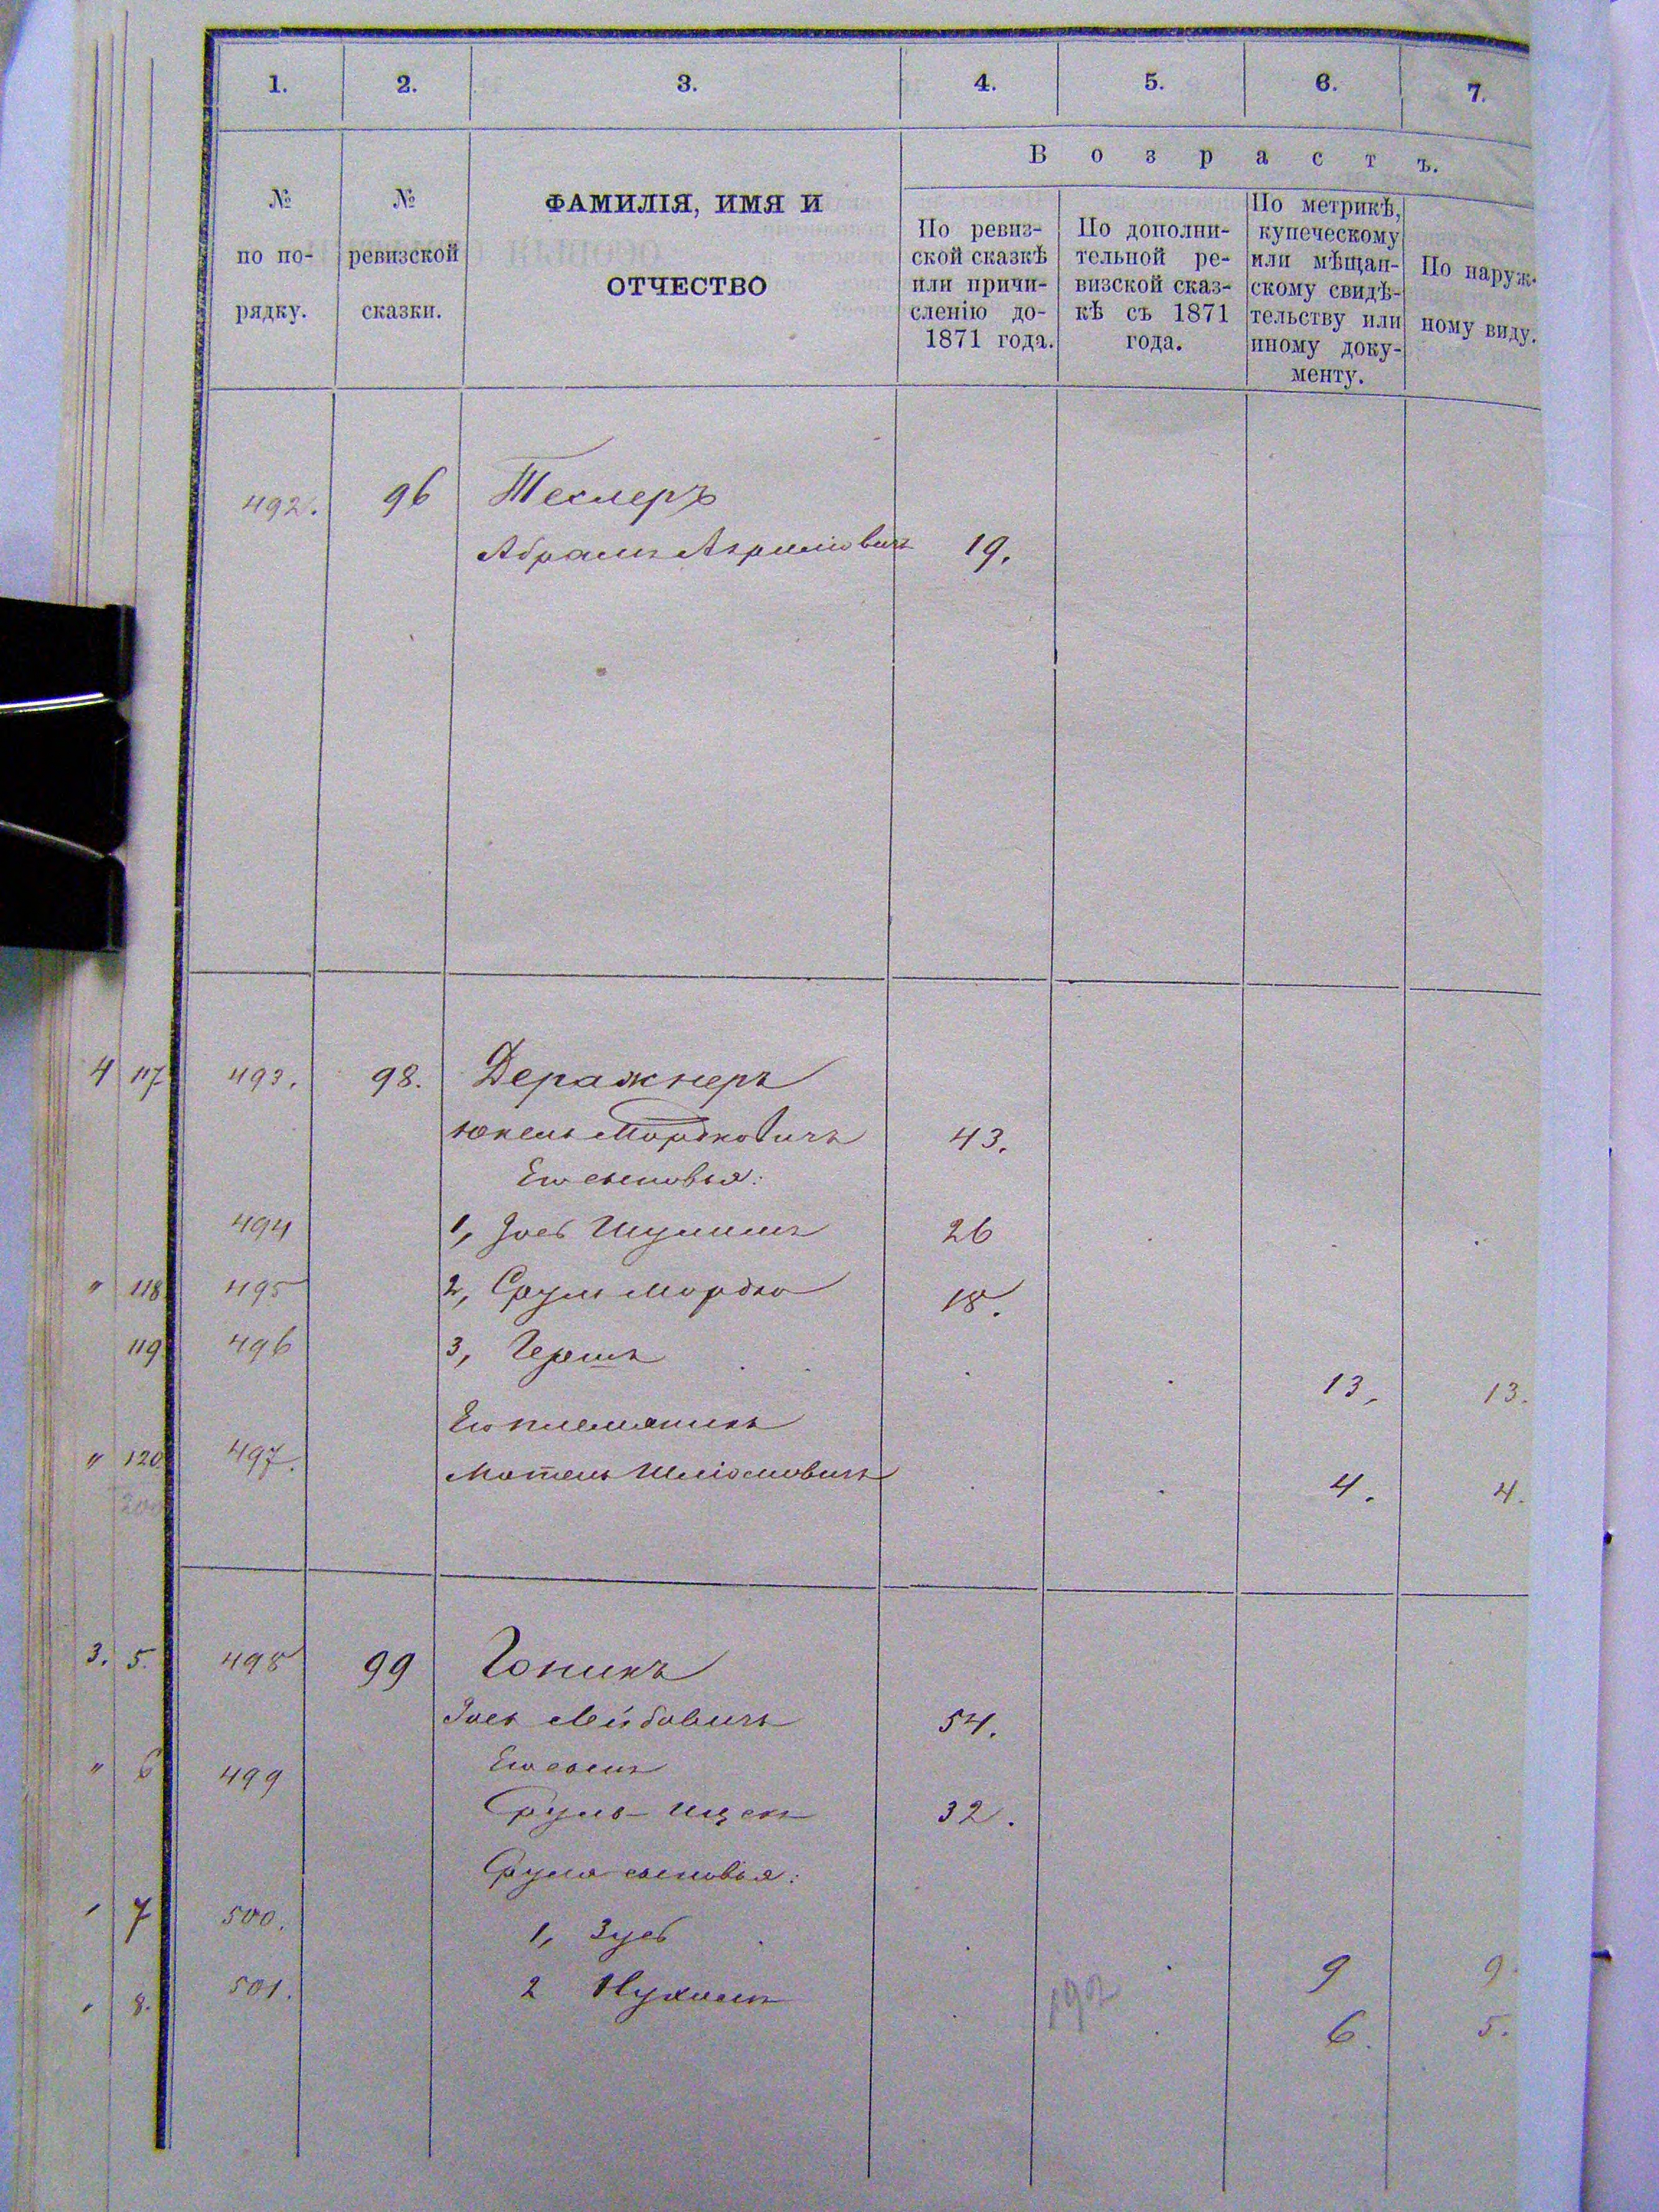 1. 2. 3. 4. 5. 6. 7.
В о з р а с т ъ.
№ по по-рядку.
№ ревизской сказки.
ФАМИЛІЯ, ИМЯ И
ОТЧЕСТВО
По ревиз-
ской сказкѣ
или причи-
сленію до-
1871 года.
По дополни-
тельной ре-
визской сказ-
кѣ съ 1871
года.
По метрикѣ,
купеческому
или мѣщан-
скому свидѣ-
тельству или
иному доку-
менту.
По наруж-
ному виду.
492. 96 Теслеръ
Абрамъ 19.
4 117 493. 98. Деражнеръ
Юкель Мордковичъ 43.
Его сыновья:
494 1, Іосъ Шулимъ 26
" 118 495 2, Сруль Мордко 18.
119 496 3, Гершъ 13. 13.
Его племянникъ
" 120 497. Мотель Шліомовичъ 4. 4.
3. 5. 498 99 Гоникъ
Іось Лейбовичъ 54.
" 6 499 Его сынъ
Сруль-Ицекъ 32.
Сруля сыновья:
7 500. 1, Зусь 9 9.
8. 501. 2 Нухимъ 6. 5.